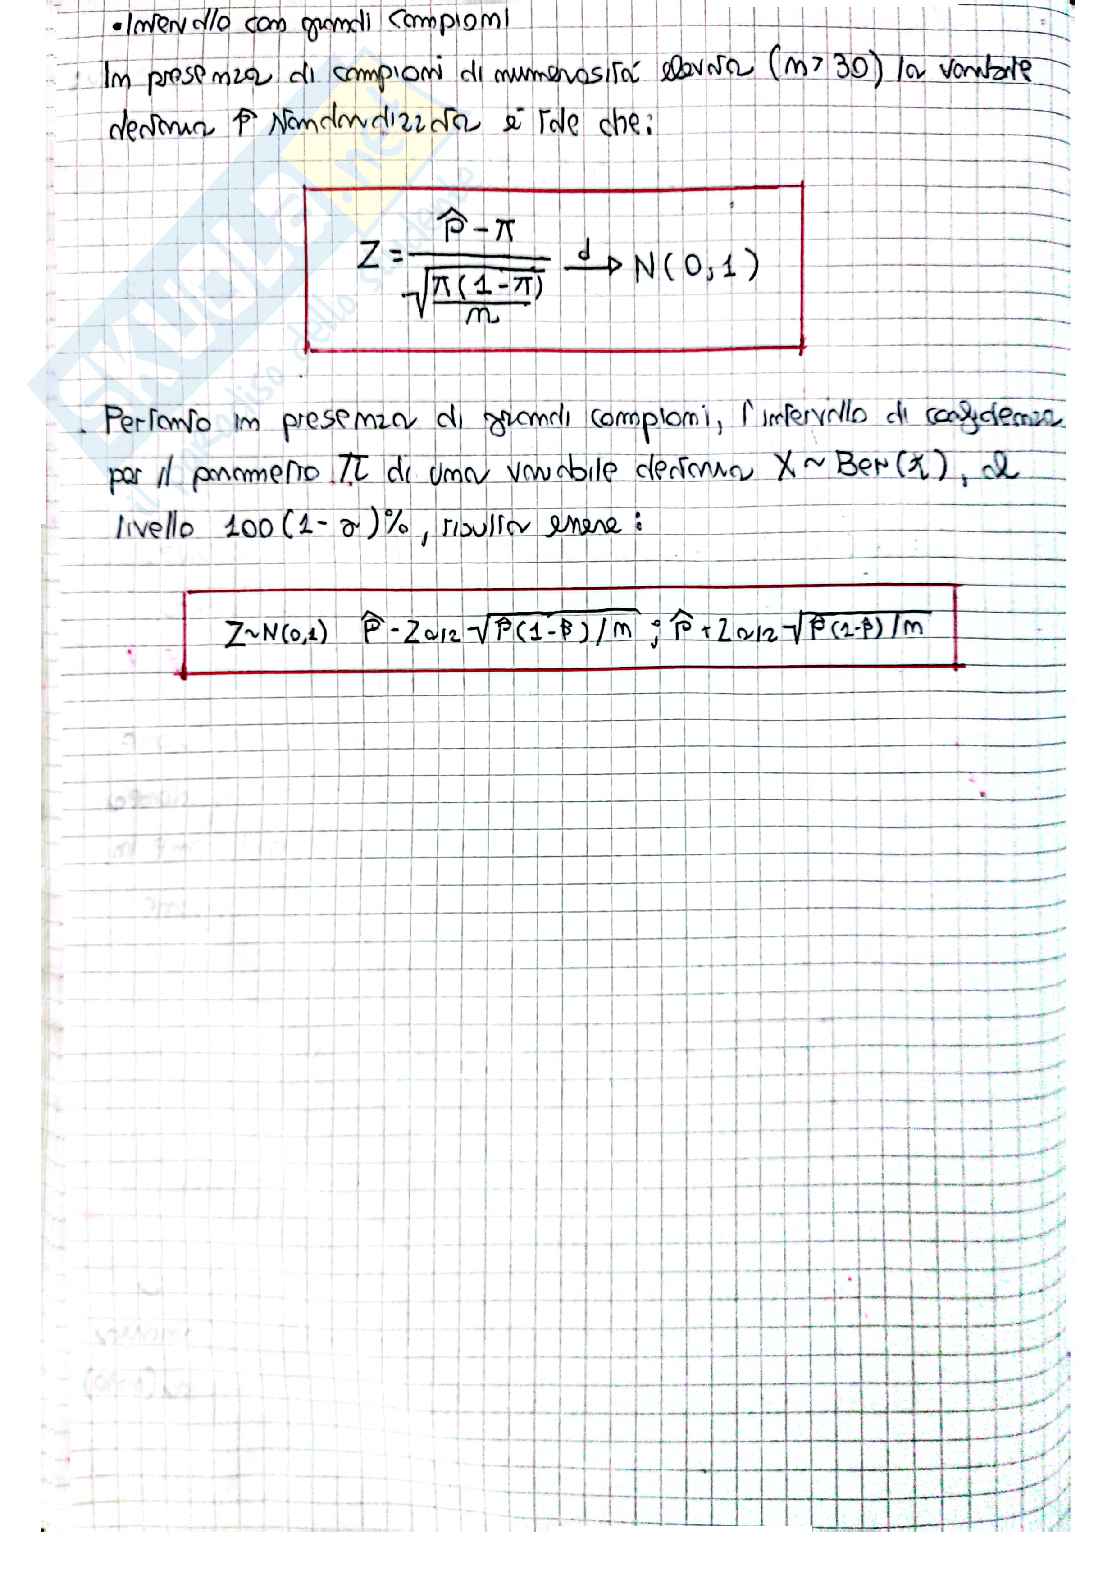 • Intervallo con grandi campioni
In presenza di campioni di numerosità elevata (n > 30) la variabile
aleatoria P̂ standardizzata è tale che:
Z = (P̂ - π) / √(π(1-π)/n) →d N(0,1)
Pertanto in presenza di grandi campioni, l'intervallo di confidenza
per il parametro π di una variabile aleatoria X ~ Ber(π), al
livello 100(1-α)%, risulta essere:
Z~N(0,1) P̂ - Zα/2 √P̂(1-P̂)/n ; P̂ + Zα/2 √P̂(1-P̂)/n
SKUOLA.net
il paradiso dello studente